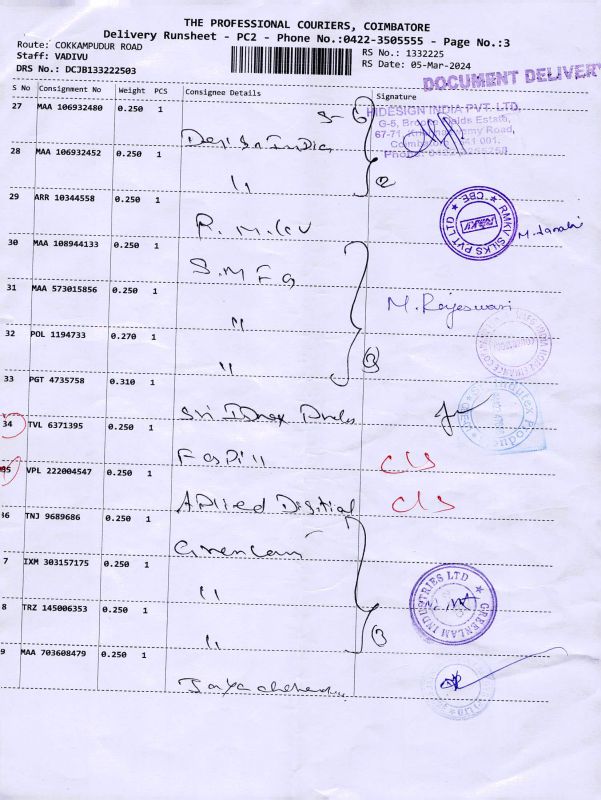 THE PROFESSIONAL COURIERS, COIMBATORE
Delivery Runsheet - PC2 - Phone No.:0422-3505555 - Page No.:3
Route: COKKAMPUDUR ROAD
Staff: VADIVU
DRS No.: DCJB133222503
RS No.: 1332225
RS Date: 05-Mar-2024
DOCUMENT DELIVERY
S No Consignment No Weight PCS Consignee Details Signature
27 MAA 106932480 0.250 1
HIDESIGN INDIA PVT. LTD.
G-5, Brooke Fields Estate,
67-71, Krishnaswamy Road,
Coimbatore 641 001.
28 MAA 106932452 0.250 1 "
2
29 ARR 10344558 0.250 1
RMKV SILKS PVT LTD
★ CBE ★
RMKV
30 MAA 108944133 0.250 1 S.M.F.G
31 MAA 573015856 0.250 1 "
M. Rajeswari
32 POL 1194733 0.270 1 "
3
33 PGT 4735758 0.310 1 Sri
34 TVL 6371395 0.250 1
cls
VPL 222004547 0.250 1 Applied Digital cls
TNJ 9689686 0.250 1 Greenlam
7 IXM 303157175 0.250 1 "
GREENLAM INDUSTRIES LTD
8 TRZ 145006353 0.250 1 "
3
9 MAA 703608479 0.250 1